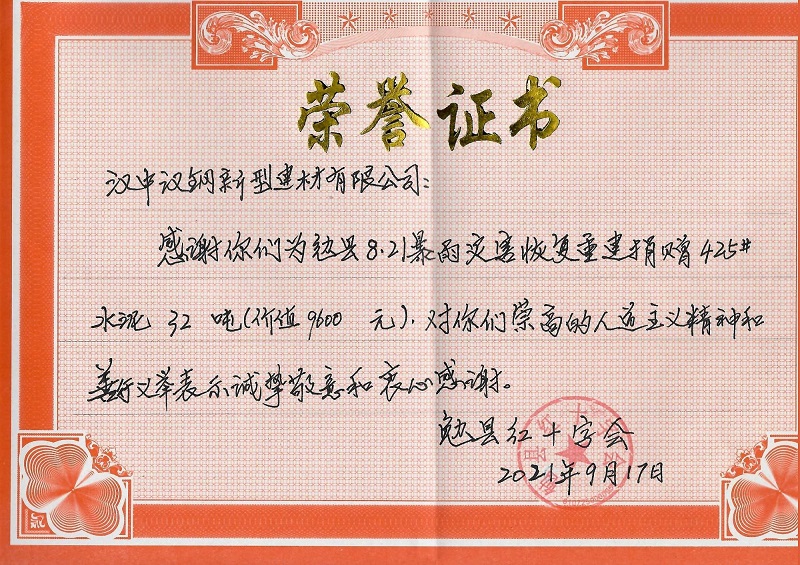 荣誉证书
汉中汉钢新型建材有限公司：
感谢你们为勉县8.21暴雨灾害恢复重建捐赠425#
水泥 32 吨(价值 9600 元)，对你们崇高的人道主义精神和
善行义举表示诚挚敬意和衷心感谢。
勉县红十字会
2021年9月17日